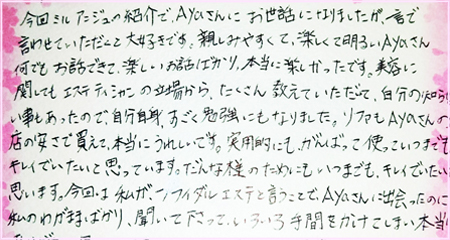 今回ミルアンジュの紹介で、Ayaさんに お世話になりましたが、一言で
言わせていただくと 大好きです。親しみやすくて、楽しくて明るいAyaさん
何でもお話できて、楽しいお話ばかり。本当に楽しかったです。美容に
関しても エステティシャンの立場から、たくさん 教えていただいて、自分の知らな
い事もあったので、自分自身、すごく勉強にもなりました。リファもAyaさんの
店の安さで買えて、本当にうれしいです。実用的にも、がんばって 使っていつまでも
キレイでいたいと思っています。だんな様のためにもいつまでも、キレイでいたい
思います。今回は 私が、ブライダルエステと言うことで、Ayaさんに出会ったのに
私のわがままばかり、聞いて下さって、いろいろ手間をかけてしまい 本当